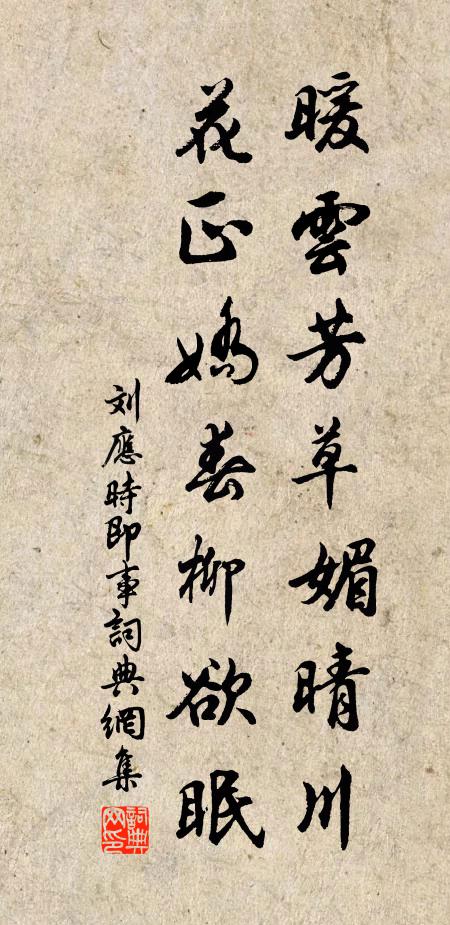 暖雲芳草媚晴川
花正嬌春柳欲眠
刘應時即事詞典網集
詞典網印